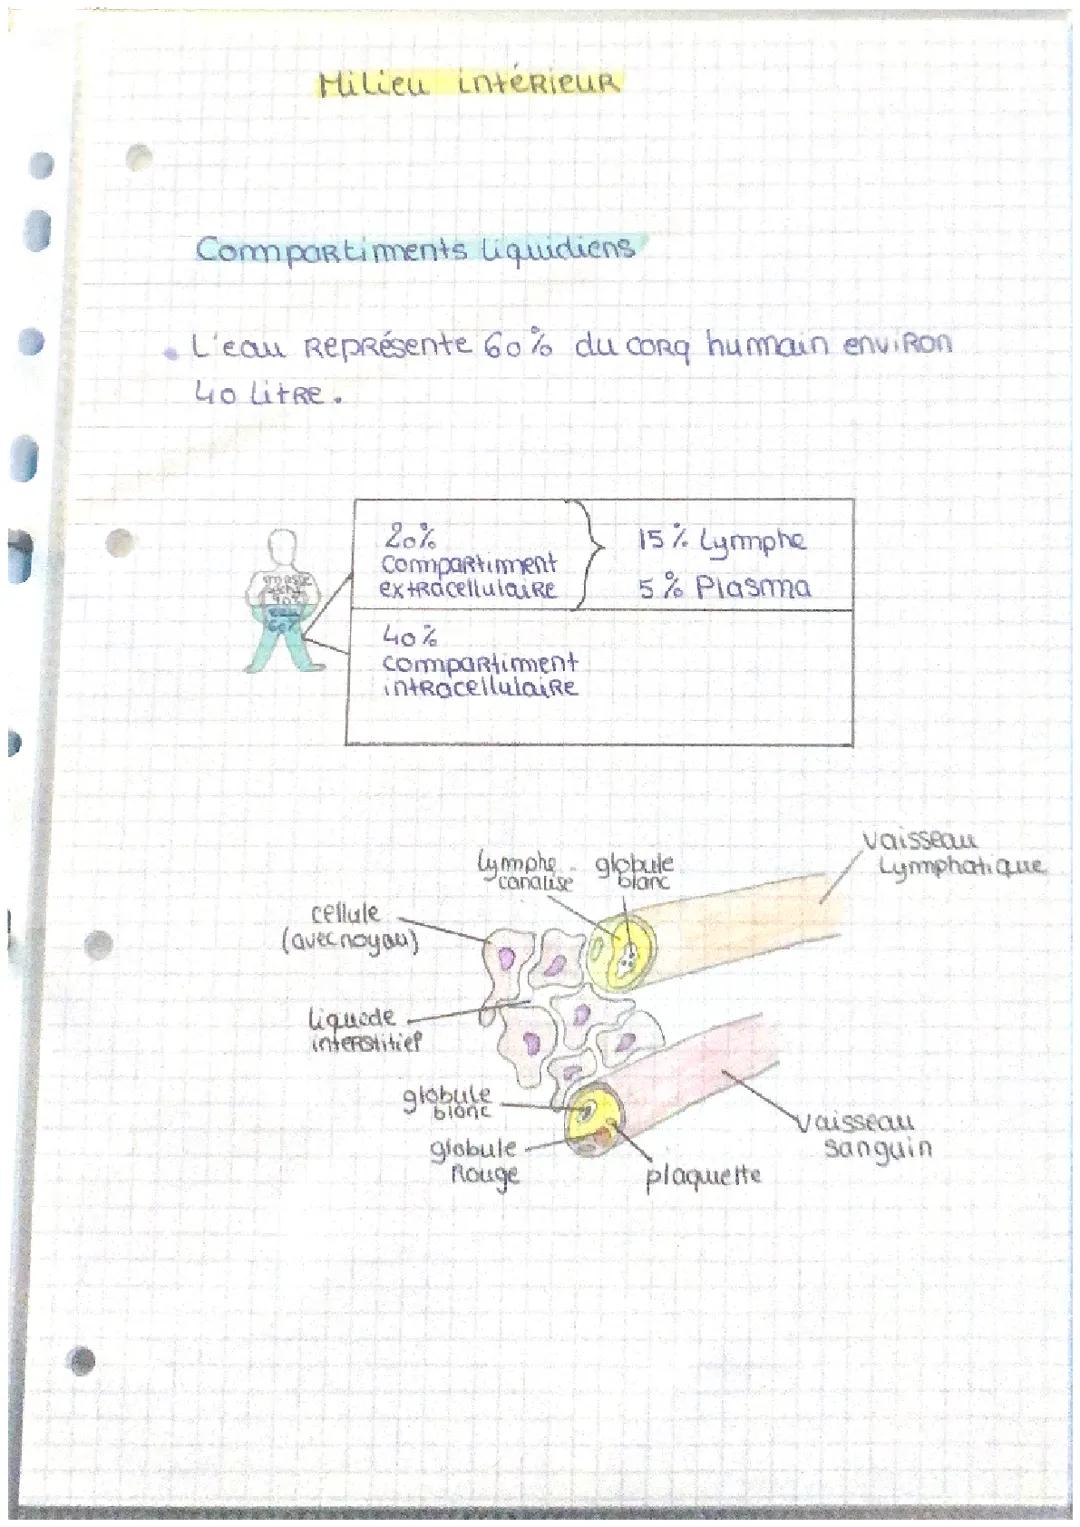 Milieu intérieur
Compartiments liquidiens
L'eau représente 60% du corq humain environ
40 litre.
masse
sèche
40%
eau
60%
20%
compartiment
extracellulaire
15% Lymphe
5% Plasma
40%
compartiment
intracellulaire
lymphe
canalise
globule
blanc
vaisseau
Lymphatique
cellule
(avec noyau)
liquide
interstitiel
globule
blanc
globule
Rouge
plaquette
vaisseau
sanguin